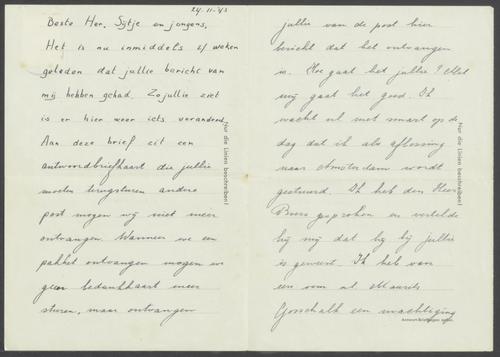 24-11-'43
Beste Her, Sijtje en jongens,
Het is nu inmiddels 2½ weken
geleden dat jullie bericht van
mij hebben gehad. Zo jullie ziet
is er hier weer iets veranderd.
Aan deze brief zit een
antwoordbriefkaart die jullie
moeten terugsturen andere
post mogen wij niet meer
ontvangen. Wanneer we een
pakket ontvangen mogen we
geen bedankkaart meer
sturen, maar ontvangen
Nur die Linien beschreiben!
jullie van de post hier
bericht dat het ontvangen
is. Hoe gaat het jullie? Met
mij gaat het goed. Ik
wacht nl met smart op de
dag dat ik als aflossing
naar Amsterdam wordt
gestuurd. Ik heb den Heer
Boers gesproken en vertelde
hij mij dat hij bij jullie
is geweest. Ik heb van
een oom nl Maurits
Gosschalk een machtiging
Nur die Linien beschreiben!